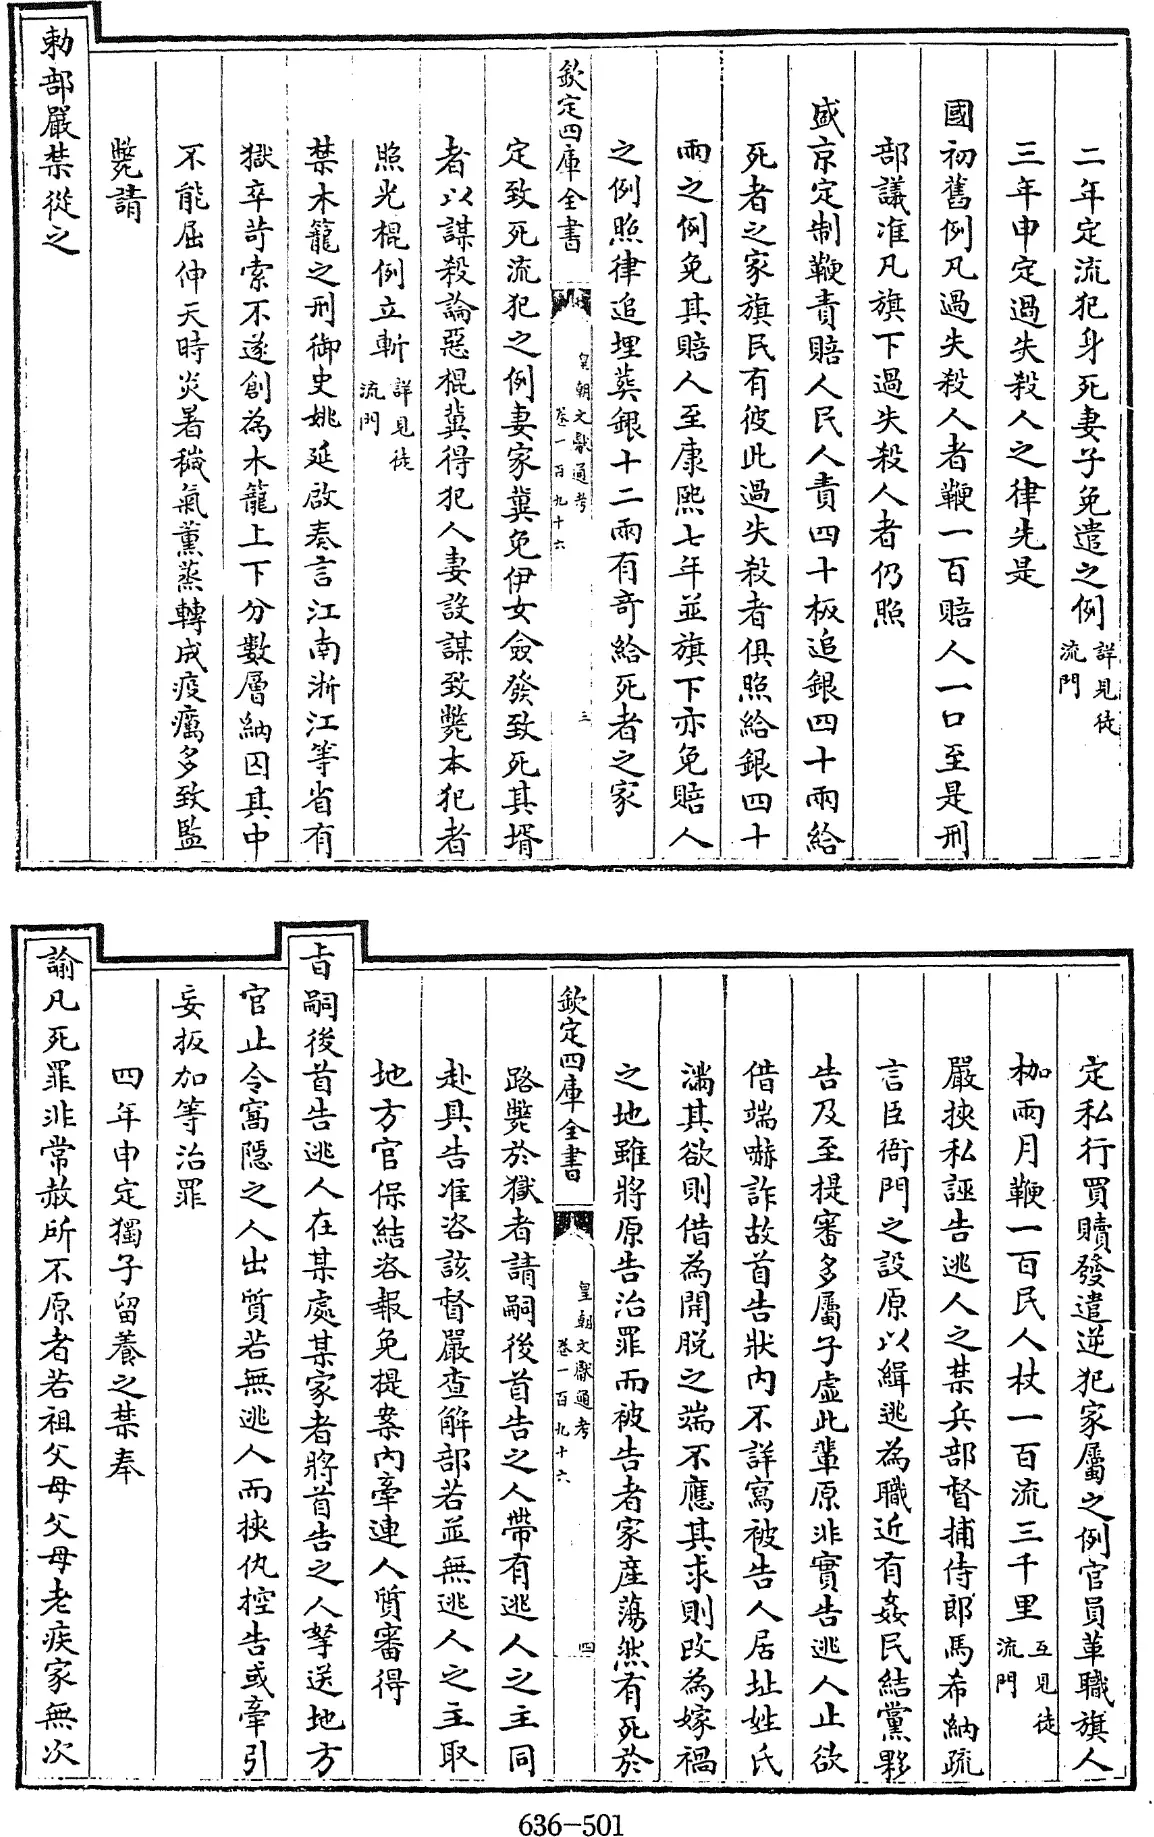 二年定流犯身死妻子免遣之例詳見徒流門
三年申定過失殺人之律先是
國初舊例凡過失殺人者鞭一百賠人一口至是刑
部議准凡旗下過失殺人者仍照
盛京定制鞭責賠人民人責四十板追銀四十兩給
死者之家旗民有彼此過失殺者俱照給銀四十
兩之例免其賠人至康熙七年並旗下亦免賠人
之例照律追埋葬銀十二兩有奇給死者之家
欽定四庫全書
皇朝文獻通考
卷一百九十六
三
定致死流犯之例妻家冀免伊女僉發致死其壻
者以謀殺論惡棍冀得犯人妻設謀致斃本犯者
照光棍例立斬詳見徒流門
禁木籠之刑御史姚延啟奏言江南浙江等省有
獄卒苛索不遂創為木籠上下分數層納囚其中
不能屈伸天時炎暑穢氣薰蒸轉成疫癘多致監
斃請
勅部嚴禁從之
定私行買贖發遣逆犯家屬之例官員革職旗人
枷兩月鞭一百民人杖一百流三千里互見徒流門
嚴挾私誣告逃人之禁兵部督捕侍郎馬希納疏
言臣衙門之設原以緝逃為職近有姦民結黨夥
告及至提審多屬子虛此輩原非實告逃人止欲
借端嚇詐故首告狀內不詳寫被告人居址姓氏
滿其欲則借為開脫之端不應其求則改為嫁禍
之地雖將原告治罪而被告者家產蕩然有死於
欽定四庫全書
皇朝文獻通考
卷一百九十六
四
路斃於獄者請嗣後首告之人帶有逃人之主同
赴具告准咨該督嚴查解部若並無逃人之主取
地方官保結咨報免提案內牽連人質審得
旨嗣後首告逃人在某處某家者將首告之人拏送地方
官止令窩隱之人出質若無逃人而挾仇控告或牽引
妄扳加等治罪
四年申定獨子留養之禁奉
諭凡死罪非常赦所不原者若祖父母父母老疾家無次
636-501